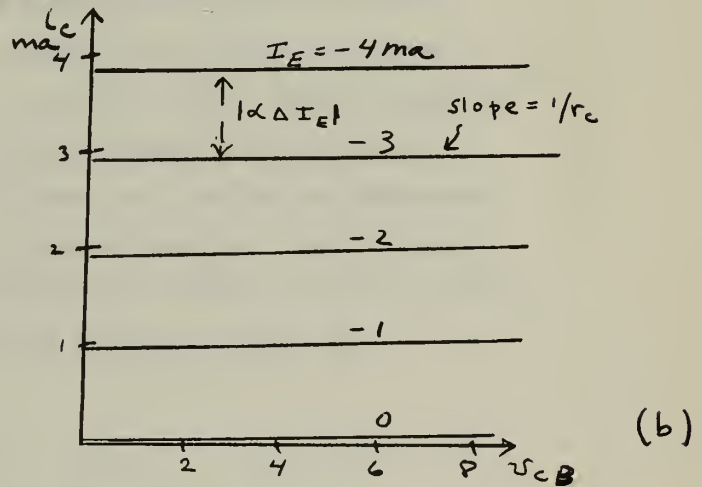 i_c
ma
4
I_E = -4 ma
|∝ Δ I_E|
slope = 1/r_c
3
- 3
2
- 2
1
- 1
0
2 4 6 8 v_cB
(b)